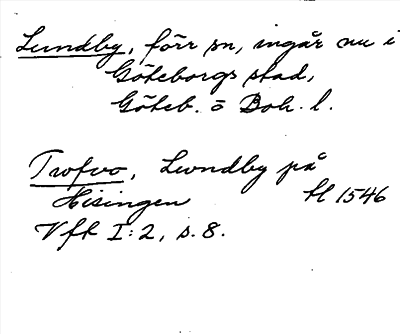 Lundby, förr sn, ingår nu i
Göteborgs stad,
Göteb. o Boh. l.
Trofvo, Lundby på
Hisingen
1546
Vfk I:2, s. 8.